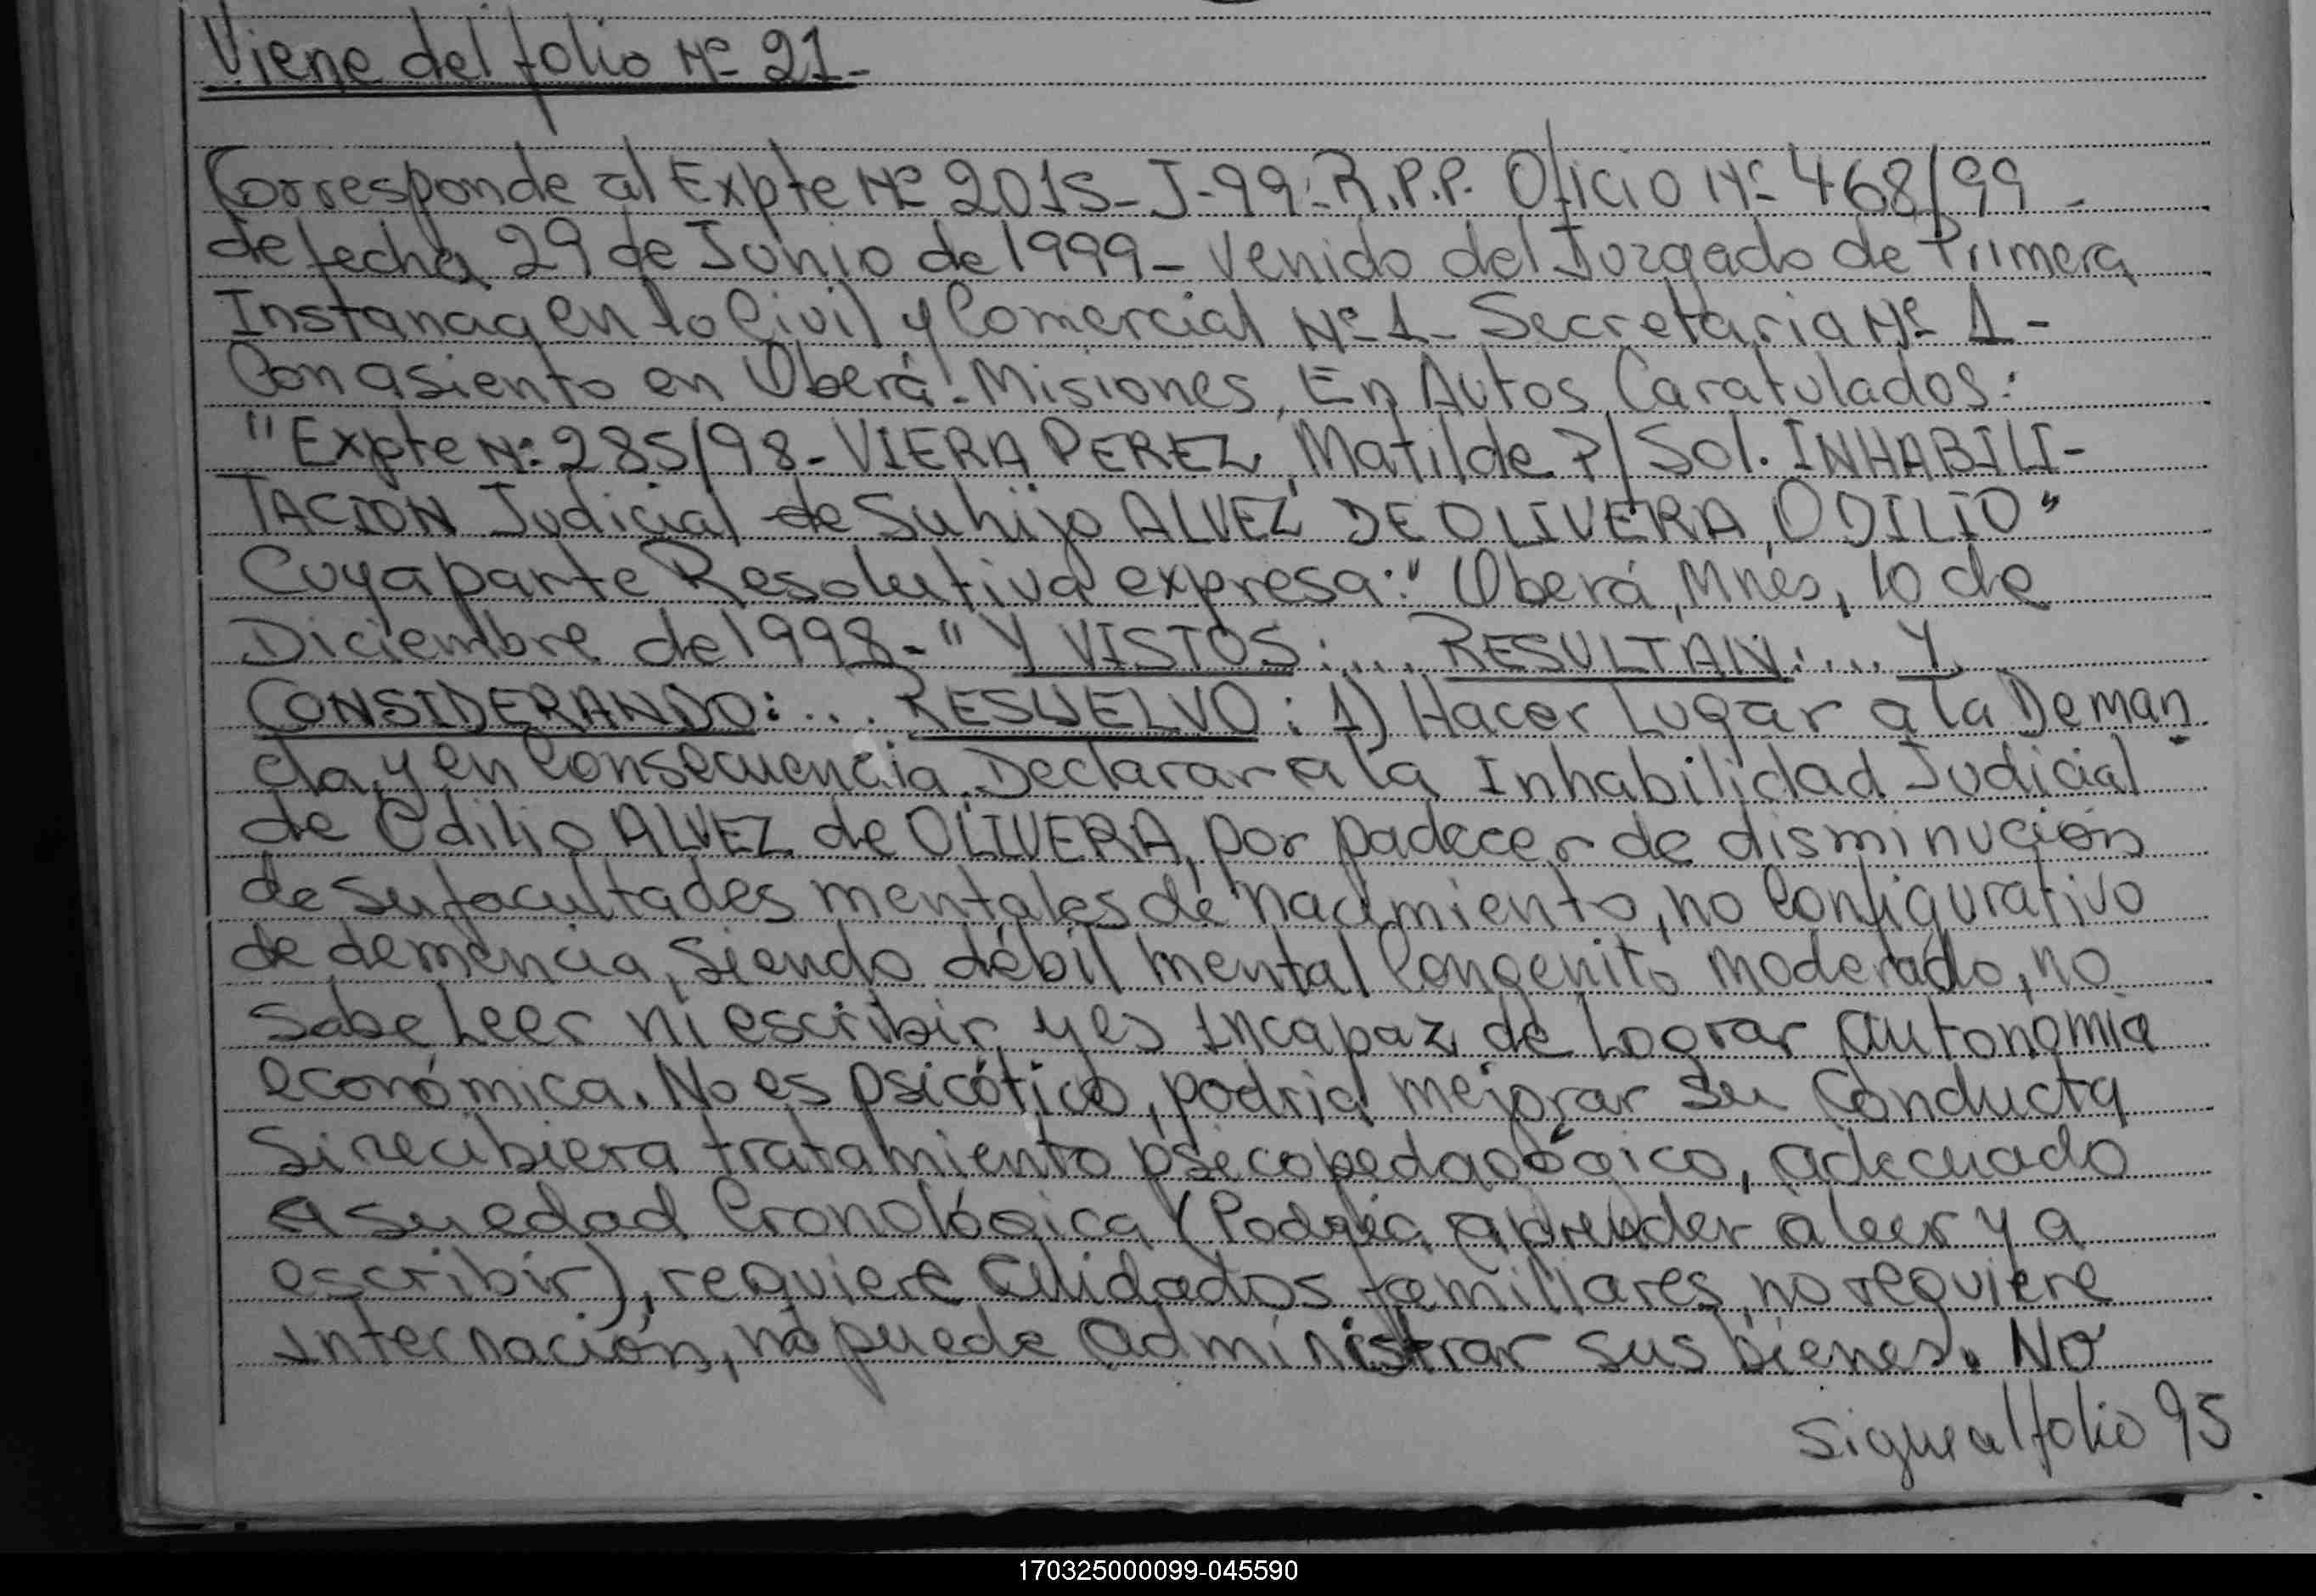 Viene del folio Nº 21-
Corresponde al Expte Nº 2015-J-99-R.P.P. Oficio Nº 468/99-
de fecha 29 de Junio de 1999- venido del Juzgado de Primera
Instancia en lo Civil y Comercial Nº 1- Secretaria Nº 1-
Con asiento en Oberá-Misiones, En Autos Caratulados:
"Expte Nº 285/98- VIERA PEREZ, Matilde P/ Sol. INHABILI-
TACION Judicial de Su hijo ALVEZ DE OLIVERA, ODILIO"
Cuya parte Resolutiva expresa: "Oberá, Mnes, 10 de
Diciembre de 1998-" Y VISTOS:... RESULTAN:... Y
CONSIDERANDO:... RESUELVO: 1) Hacer Lugar a la Deman-
da, y en Consecuencia Declarar a la Inhabilidad Judicial
de Odilio ALVEZ de OLIVERA, por padecer de disminución
de su facultades mentales de nacimiento, no Configurativo
de demencia, Siendo débil mental Congenito moderado, no
Sabe Leer ni escribir, y es Incapaz de Lograr autonomia
económica. No es psicótico, podria mejorar su Conducta
Si recibiera tratamiento psicopedagógico, adecuado
a su edad Cronológica (Podria aprender a leer y a
escribir), requiere Cuidados familiares, no requiere
Internación, no puede administrar sus bienes. No
Sigue al folio 95
170325000099-045590